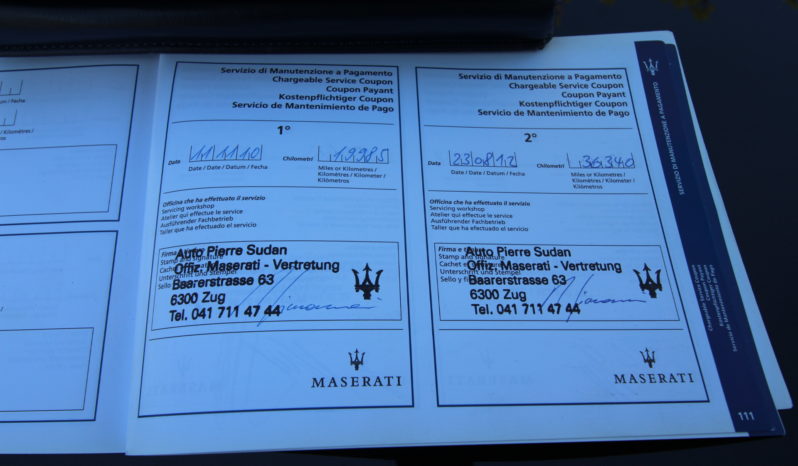 n / Fecha
/ Kilomètres /
Servizio di Manutenzione a Pagamento
Chargeable Service Coupon
Coupon Payant
Kostenpflichtiger Coupon
Servicio de Mantenimiento de Pago
1°
Data 11 11 10 Chilometri 19985
Date / Date / Datum / Fecha
Miles or Kilometres /
Kilomètres / Kilometer /
Kilómetros
Officina che ha effettuato il servizio
Servicing workshop
Atelier qui effectue le service
Ausführender Fachbetrieb
Taller que ha efectuado el servicio
Firma e
Stamp and signature
Cachet
Unterschrift und Stempel
Sello y
Auto Pierre Sudan
Offiz. Maserati - Vertretung
Baarerstrasse 63
6300 Zug
Tel. 041 711 47 44
MASERATI
Servizio di Manutenzione a Pagamento
Chargeable Service Coupon
Coupon Payant
Kostenpflichtiger Coupon
Servicio de Mantenimiento de Pago
2°
Data 23 08 12 Chilometri 36340
Date / Date / Datum / Fecha
Miles or Kilometres /
Kilomètres / Kilometer /
Kilómetros
Officina che ha effettuato il servizio
Servicing workshop
Atelier qui effectue le service
Ausführender Fachbetrieb
Taller que ha efectuado el servicio
Firma e
Stamp and signature
Cachet
Unterschrift und Stempel
Sello y
Auto Pierre Sudan
Offiz. Maserati - Vertretung
Baarerstrasse 63
6300 Zug
Tel. 041 711 47 44
MASERATI
SERVIZIO DI MANUTENZIONE A PAGAMENTO
Chargeable Service Coupon
Coupon Payant
Kostenpflichtiger Coupon
Servicio de Mantenimiento de Pago
111